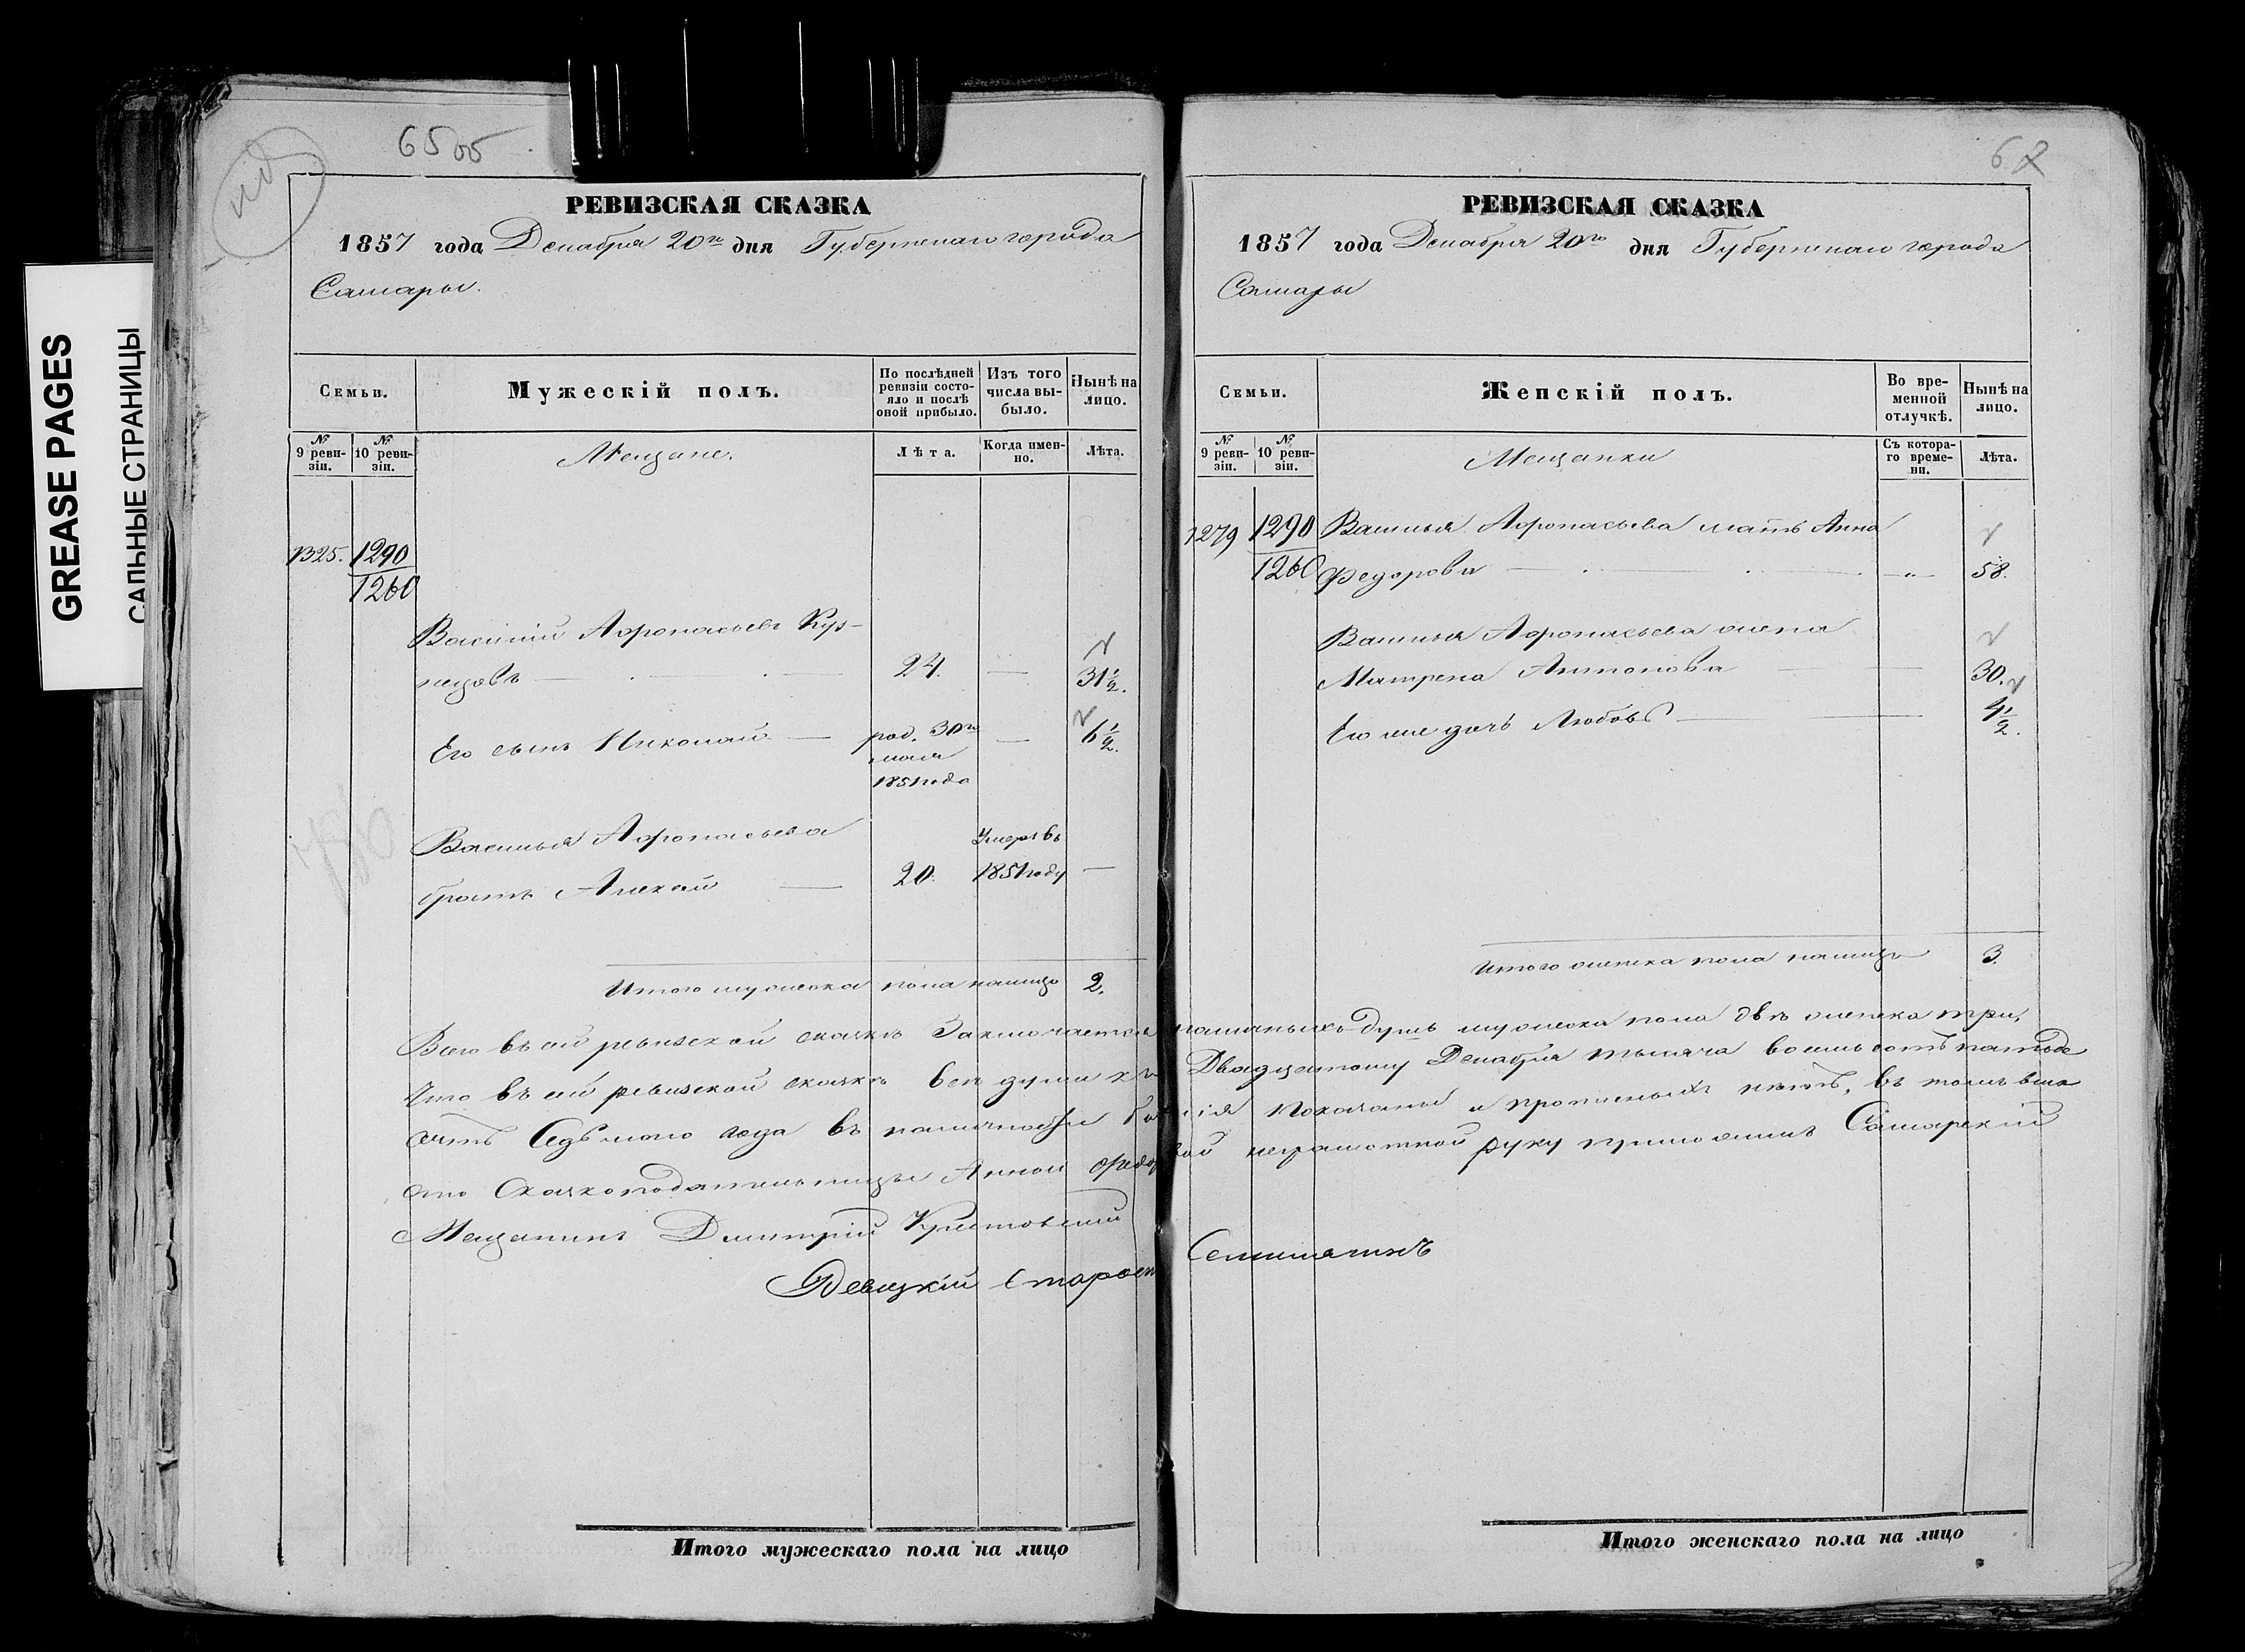 GREASE PAGES
САЛЬНЫЕ СТРАНИЦЫ
65 об
РЕВИЗСКАЯ СКАЗКА
1857 года Декабря 20го дня Губернскаго города
Самары.
Семьи.
Мужескій полъ.
По послѣдней ревизіи состояло и послѣ оной прибыло.
Изъ того числа выбыло.
Нынѣ на лицо.
№ 9 ревизіи.
№ 10 ревизіи.
Мещане.
Лѣта.
Когда именно.
Лѣта.
1325. 1290
1260
Василий Афонасьевъ Куз-
нецовъ — 24. — 31½.
Его сынъ Николай — род. 30го — 6½.
мая
1851 года
Василья Афонасьева Умеръ въ
братъ Алексей — 20. 1851 году —
Итого мужеска пола налицо 2.
РЕВИЗСКАЯ СКАЗКА
1857 года Декабря 20го дня Губернскаго города
Самары
Семьи.
Женскій полъ.
Во временной отлучкѣ.
Нынѣ на лицо.
№ 9 ревизіи.
№ 10 ревизіи.
Мещанки
Съ котораго времени.
Лѣта.
1279 1290 Василья Афонасьева мать Анна
1260 Федорова — „ — 58.
Василья Афонасьева жена
Матрена Антонова — 30.
Его же дочь Любовь — 4½.
Итого женска пола налицо 3.
Всего въ сей ревизской сказкѣ Заключается наличныхъ душъ мужеска пола двѣ женска три,
Что въ сей ревизской сказкѣ все души къ Двадцатому Декабря тысяча восемь сотъ пятьде
сятъ Седьмого года въ наличности показаны и прописныхъ нѣтъ, въ томъ вме
сто Сказкоподательницы Анной Федоровой неграмотной руку приложилъ Самарский
Мещанинъ Дмитрий
Староста Семишагинъ
Итого мужескаго пола на лицо
Итого женскаго пола на лицо